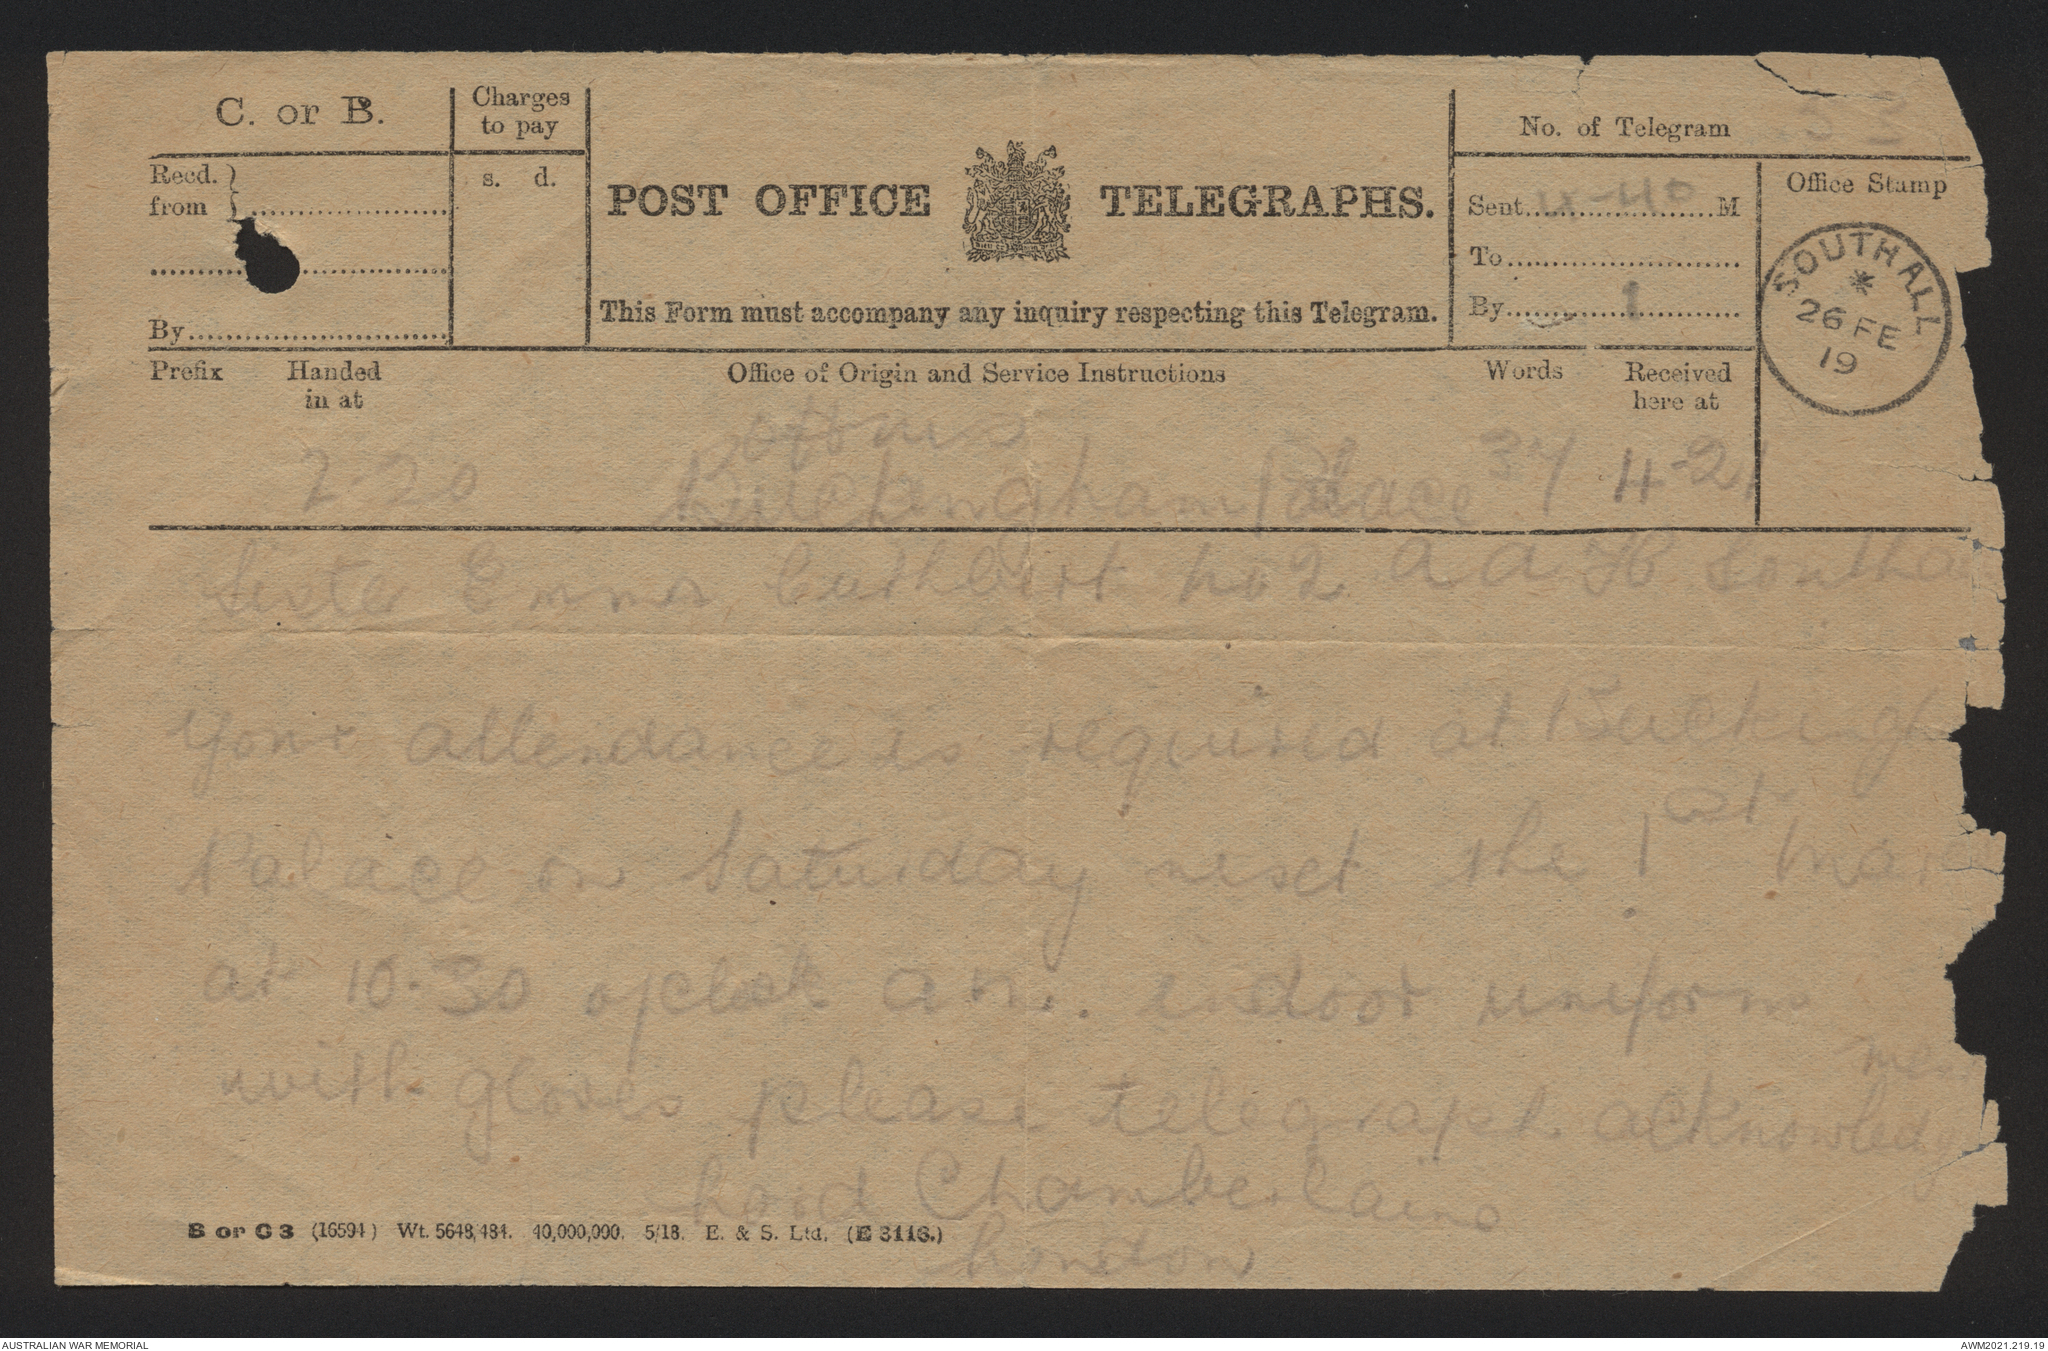 C. or B.
Charges
to pay
No. of Telegram
Recd.
from
s. d.
POST OFFICE TELEGRAPHS.
Sent 4-40 M
Office Stamp
To
By
This Form must accompany any inquiry respecting this Telegram.
By
SOUTHALL
26 FE
19
Prefix
Handed
in at
Office of Origin and Service Instructions
Words
Received
here at
2-20 Buckingham Palace 37 4-21
Sister Emma Cuthbert No 2 A A H Southa
Your attendance is required at Buckingh
Palace on Saturday next the 1st Marc
at 10.30 oclock am. indoor uniform
with gloves please telegraph acknowledg
Lord Chamberlain
London
B or C 3 (16594) Wt. 5648/484. 40,000,000. 5/18. E. & S. Ltd. (E 3116.)
AUSTRALIAN WAR MEMORIAL
AWM2021.219.19